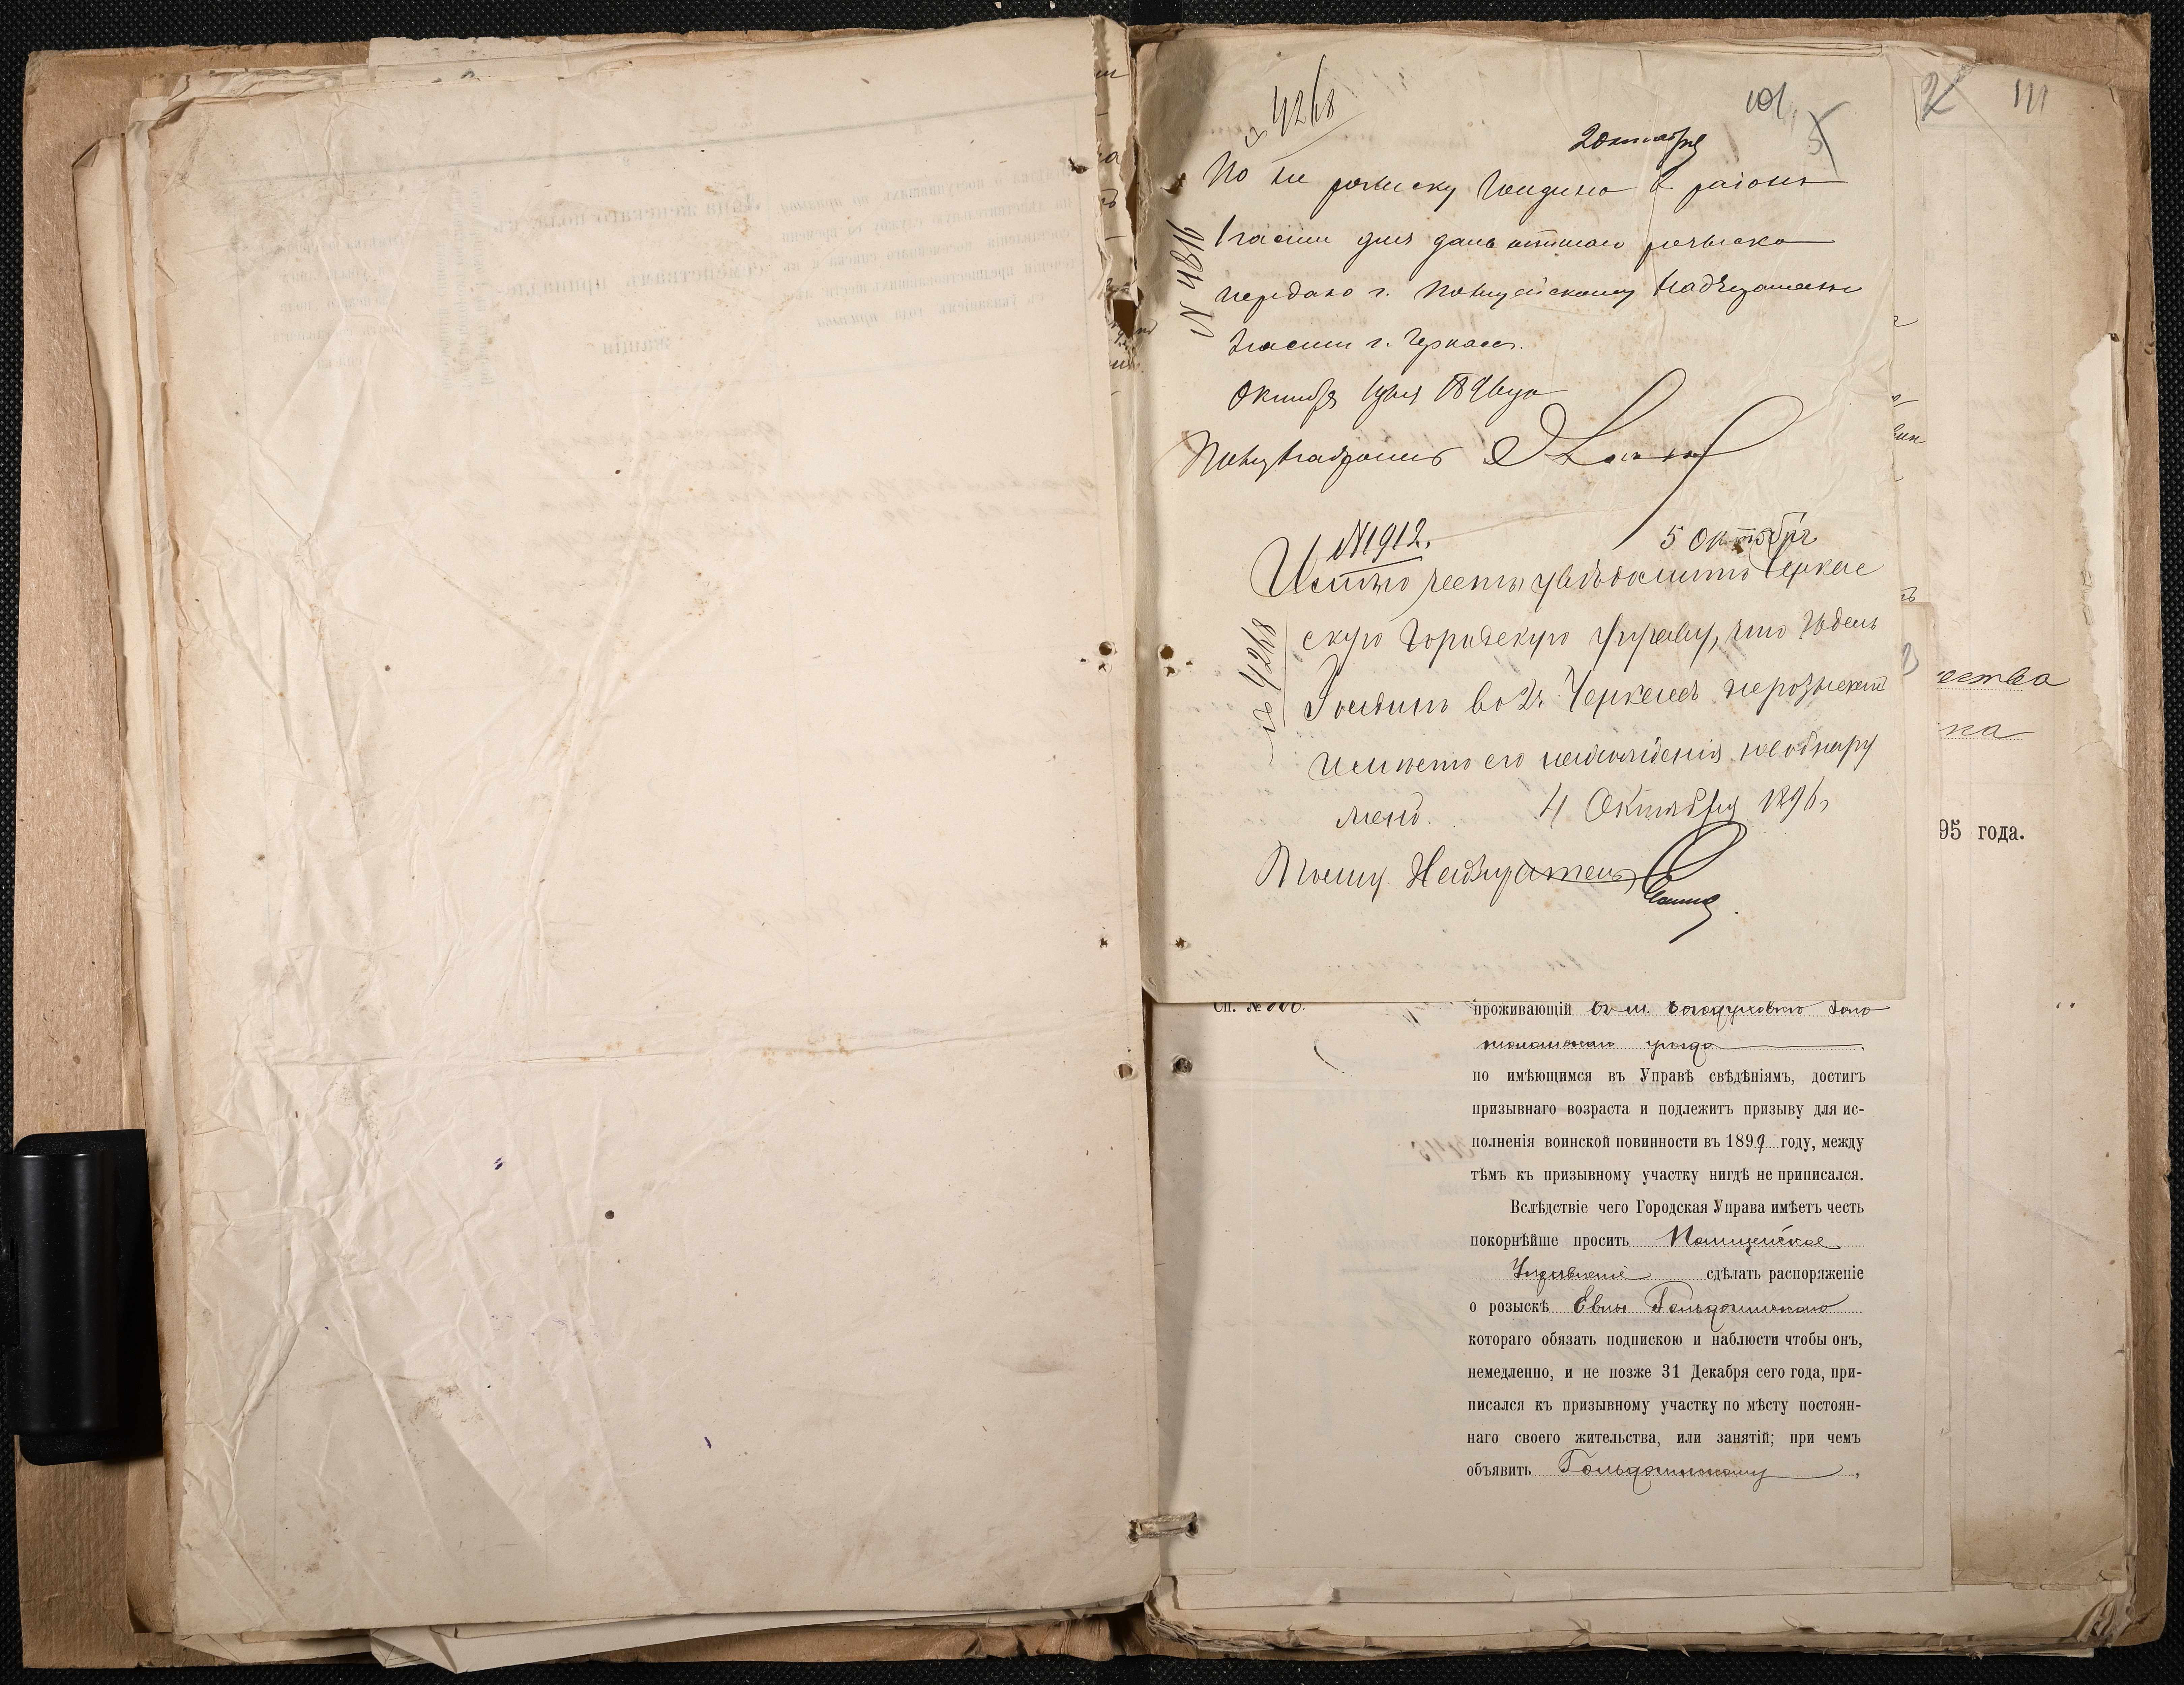 4268
101
5
2
111
2 октября
По не розыску Гендина в районѣ
1 части для дальнѣйшаго розыска
передано г. Полицейскому Надзирателю
2 части г. Черкассъ.
Октября 1 дня 1896 года
Полиц Надзиратель
№ 4816
№ 1912.
5 Октября
Имѣю честь увѣдомить Черкас
скую Городскую Управу, что Юдель
Гендинъ во 2 ч. Черкассъ не розыскан
и мѣсто его нахожденія не обнару
жено.
4 Октября 1896 г.
Полиц. Надзиратель
4268
ества
на
95 года.
Сп. №
проживающій въ м. Богодуховкѣ Золо
тоношскаго уѣзда
по имѣющимся въ Управѣ свѣдѣніямъ, достигъ
призывнаго возраста и подлежитъ призыву для ис-
полненія воинской повинности въ 1899 году, между
тѣмъ къ призывному участку нигдѣ не приписался.
Вслѣдствіе чего Городская Управа имѣетъ честь
покорнѣйше просить Полицейское
Управленіе сдѣлать распоряженіе
о розыскѣ
котораго обязать подпискою и наблюсти чтобы онъ,
немедленно, и не позже 31 Декабря сего года, при-
писался къ призывному участку по мѣсту постоян-
наго своего жительства, или занятій; при чемъ
объявить